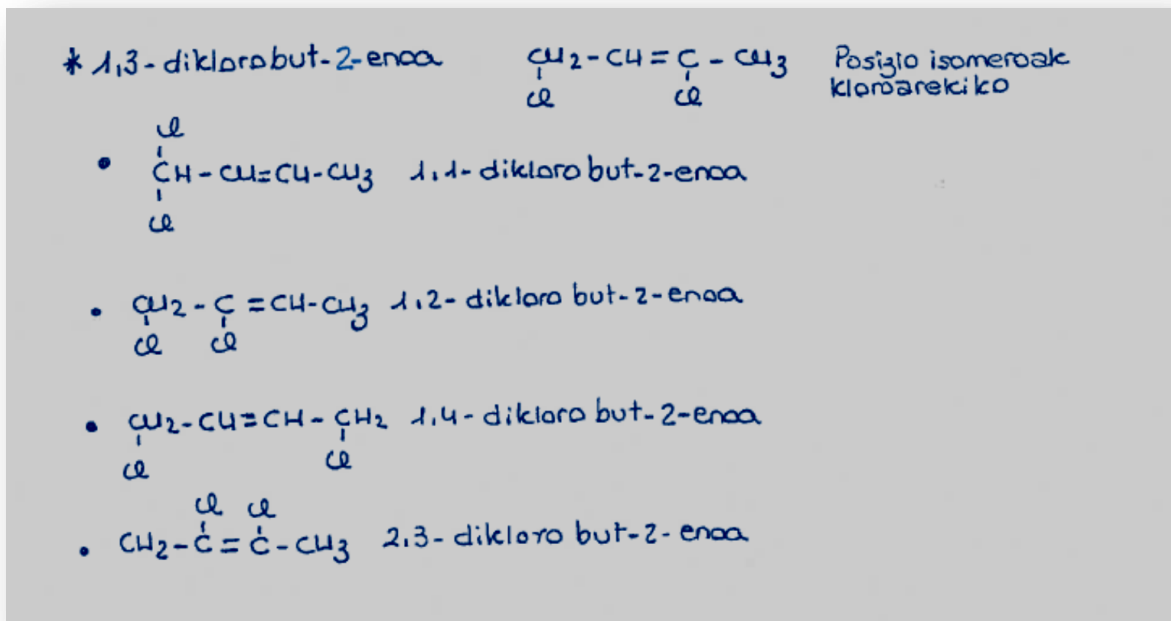 * 1,3-diklorobut-2-enoa CH2-CH=C-CH3 Posizio isomeroak
Cl Cl kloroarekiko
Cl
• CH-CH=CH-CH3 1,1-dikloro but-2-enoa
Cl
• CH2-C=CH-CH3 1,2-dikloro but-2-enoa
Cl Cl
• CH2-CH=CH-CH2 1,4-dikloro but-2-enoa
Cl Cl
Cl Cl
• CH2-C=C-CH3 2,3-dikloro but-2-enoa